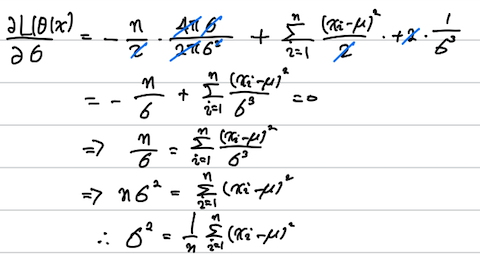 ∂L(θ(x)/∂σ = - n/2 · 4πσ/2πσ² + Σ_{i=1}^{n} (xi-μ)²/2 · +2 · 1/σ³
= - n/σ + Σ_{i=1}^{n} (xi-μ)²/σ³ = 0
=> n/σ = Σ_{i=1}^{n} (xi-μ)²/σ³
=> nσ² = Σ_{i=1}^{n} (xi-μ)²
∴ σ² = 1/n Σ_{i=1}^{n} (xi-μ)²